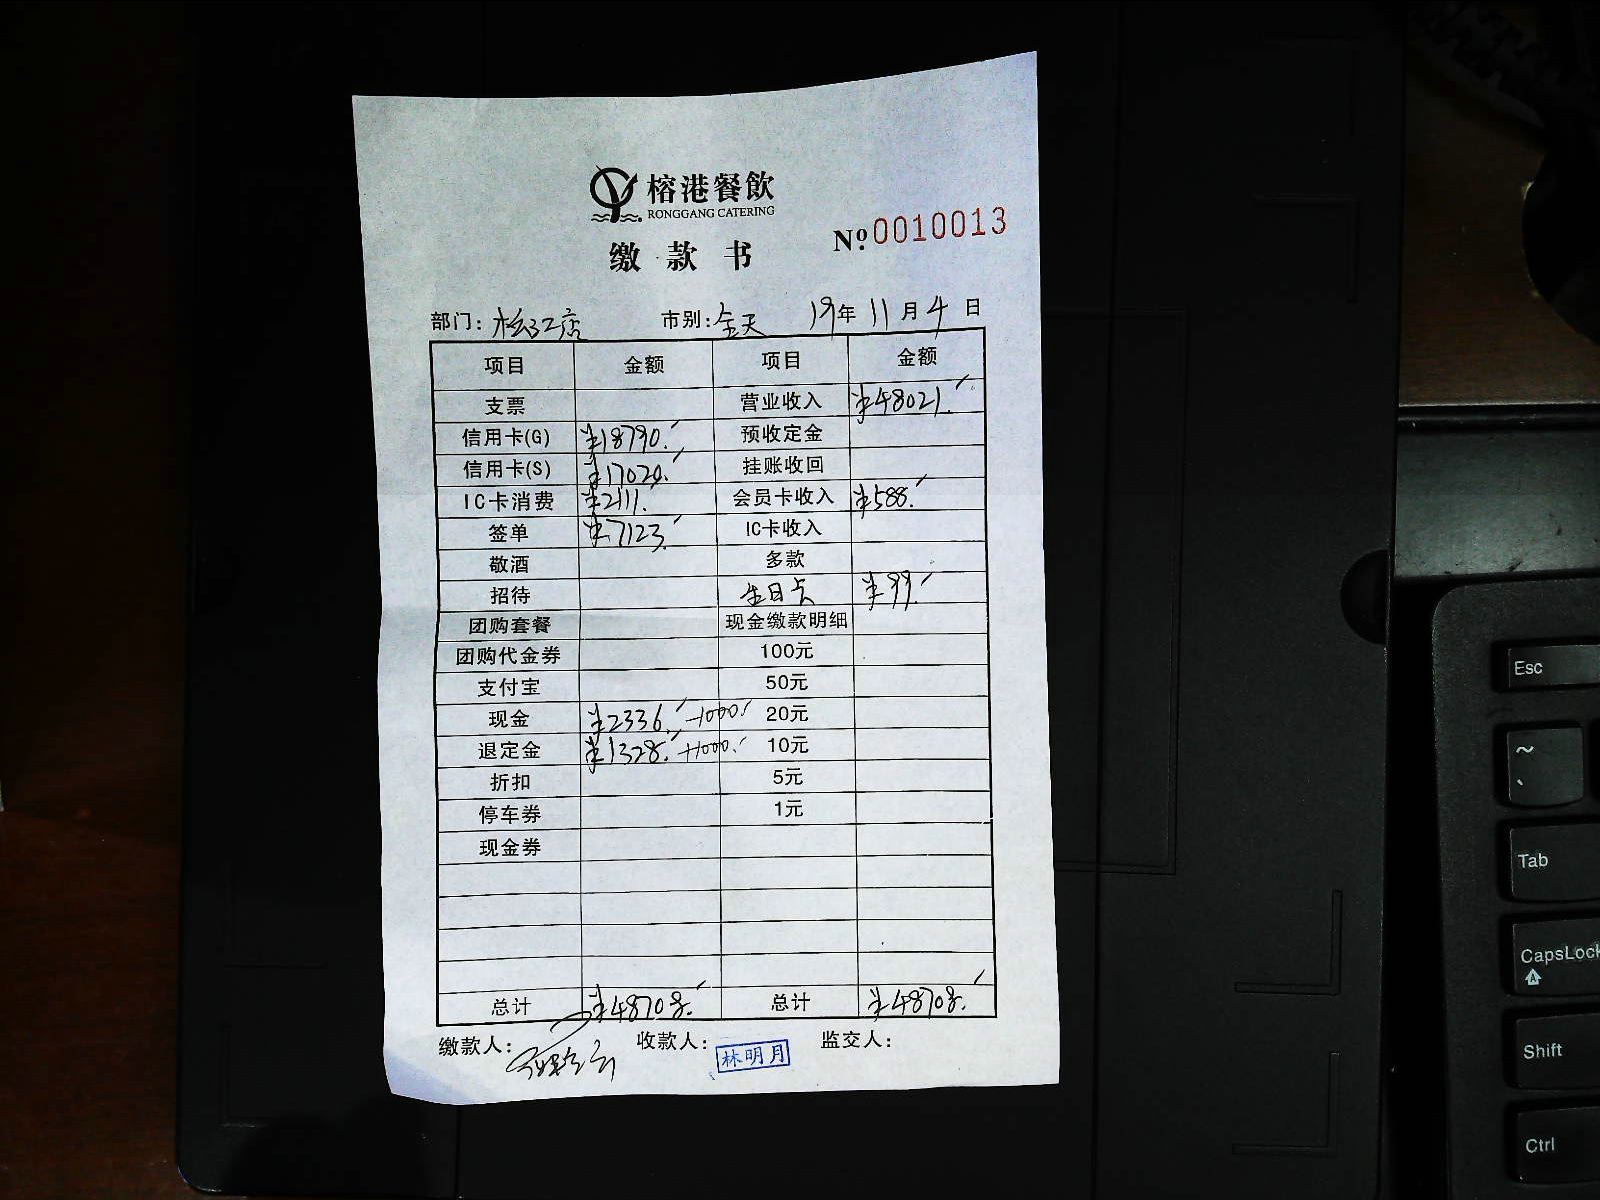 榕港餐飲
RONGGANG CATERING
缴款书
Nº 0010013
部门: 松江店 市别: 全天 19年 11月 4日
项目 金额 项目 金额
支票 营业收入 ¥48021.
信用卡(G) ¥18790. 预收定金
信用卡(S) ¥17020. 挂账收回
IC卡消费 ¥2111. 会员卡收入 ¥588.
签单 ¥7123. IC卡收入
敬酒 多款
招待 生日卡 ¥99.
团购套餐 现金缴款明细
团购代金券 100元
支付宝 50元
现金 ¥2336. -1000. 20元
退定金 ¥1328. +1000. 10元
折扣 5元
停车券 1元
现金券
总计 ¥48708. 总计 ¥48708.
缴款人: 收款人: 林明月 监交人:
Esc
~
、
Tab
CapsLock
Shift
Ctrl